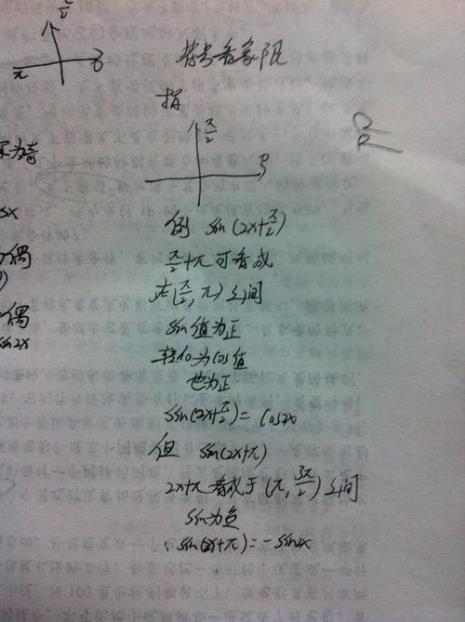 π/2
π 0
符号看象限
指
π/2
例 sin(2x+π/2)
π/2+x 可看成
在(π/2, π)之间
sin值为正
转化为cos值
也为正
sin(2x+π/2)= cos2x
但 sin(2x+π)
2x+π 看成于(π, 3π/2)之间
sin为负
∴ sin(2x+π)=-sin2x
为奇
sx
偶
偶
sin2x